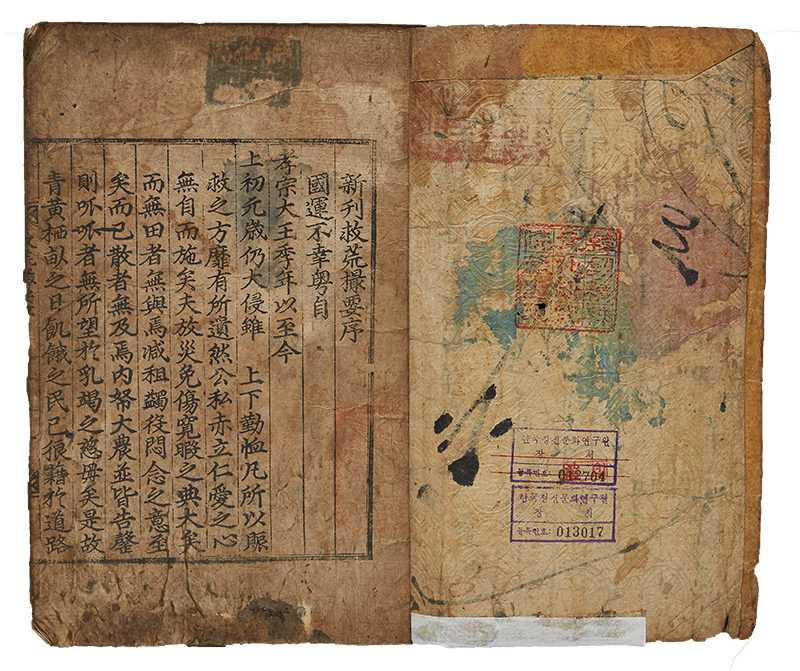 한국정신문화연구원
장 서
등록번호: 012704
한국정신문화연구원
장 서
등록번호: 013017
新刊救荒撮要序
國運不幸奧自
孝宗大王季年以至今
上初元歲仍大侵雖 上下勤恤凡所以賑
救之方靡有所遺然公私赤立仁愛之心
無自而施矣夫放災免傷寬暇之典大矣
而無田者無與焉减租蠲役悶念之意至
矣而已散者無及焉内帑大農並皆告罄
則呱呱者無所望於乳竭之慈母矣是故
青黃栖畝之日飢餓之民已狼藉於道路